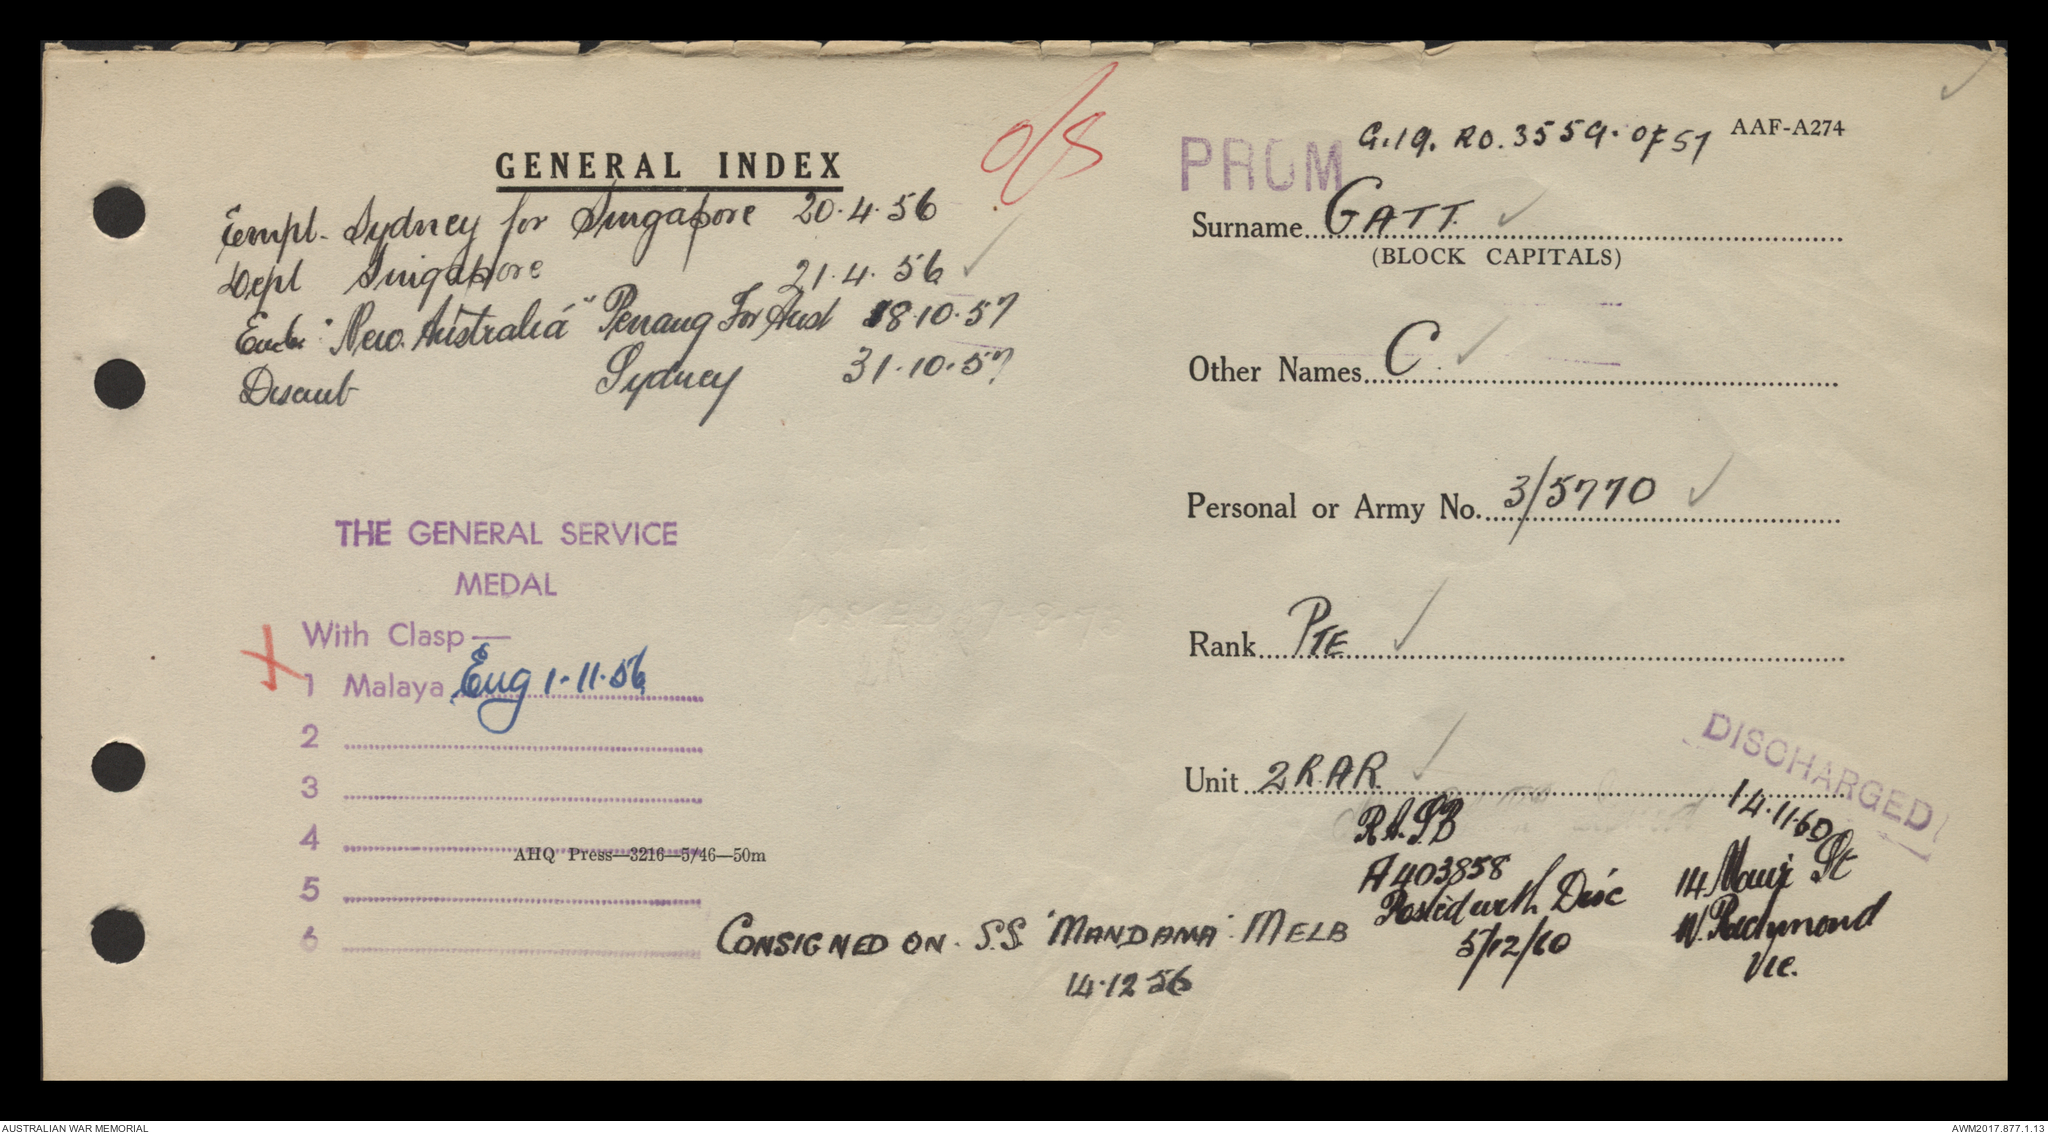 GENERAL INDEX
O/S
Empl. Sydney for Singapore 20.4.56
Depl Singapore 21.4.56
Emb "New Australia" Penang For Aust 18.10.57
Disemb Sydney 31.10.57
THE GENERAL SERVICE
MEDAL
With Clasp—
1 Malaya Eng 1.11.56
2
3
4
5
6
AHQ Press—3216—5/46—50m
CONSIGNED ON S.S. "MANDAMA" MELB
14.12.56
PROM G.19. RO. 3559. OF 57 AAF-A274
Surname GATT
(BLOCK CAPITALS)
Other Names C
Personal or Army No. 3/5770
Rank PTE
Unit 2 R.A.R.
DISCHARGED
14.11.60
R.A.S.B
A403858
Posted with Disc
5/12/60
14 St
W. Richmond
Vic.
AUSTRALIAN WAR MEMORIAL
AWM2017.877.1.13